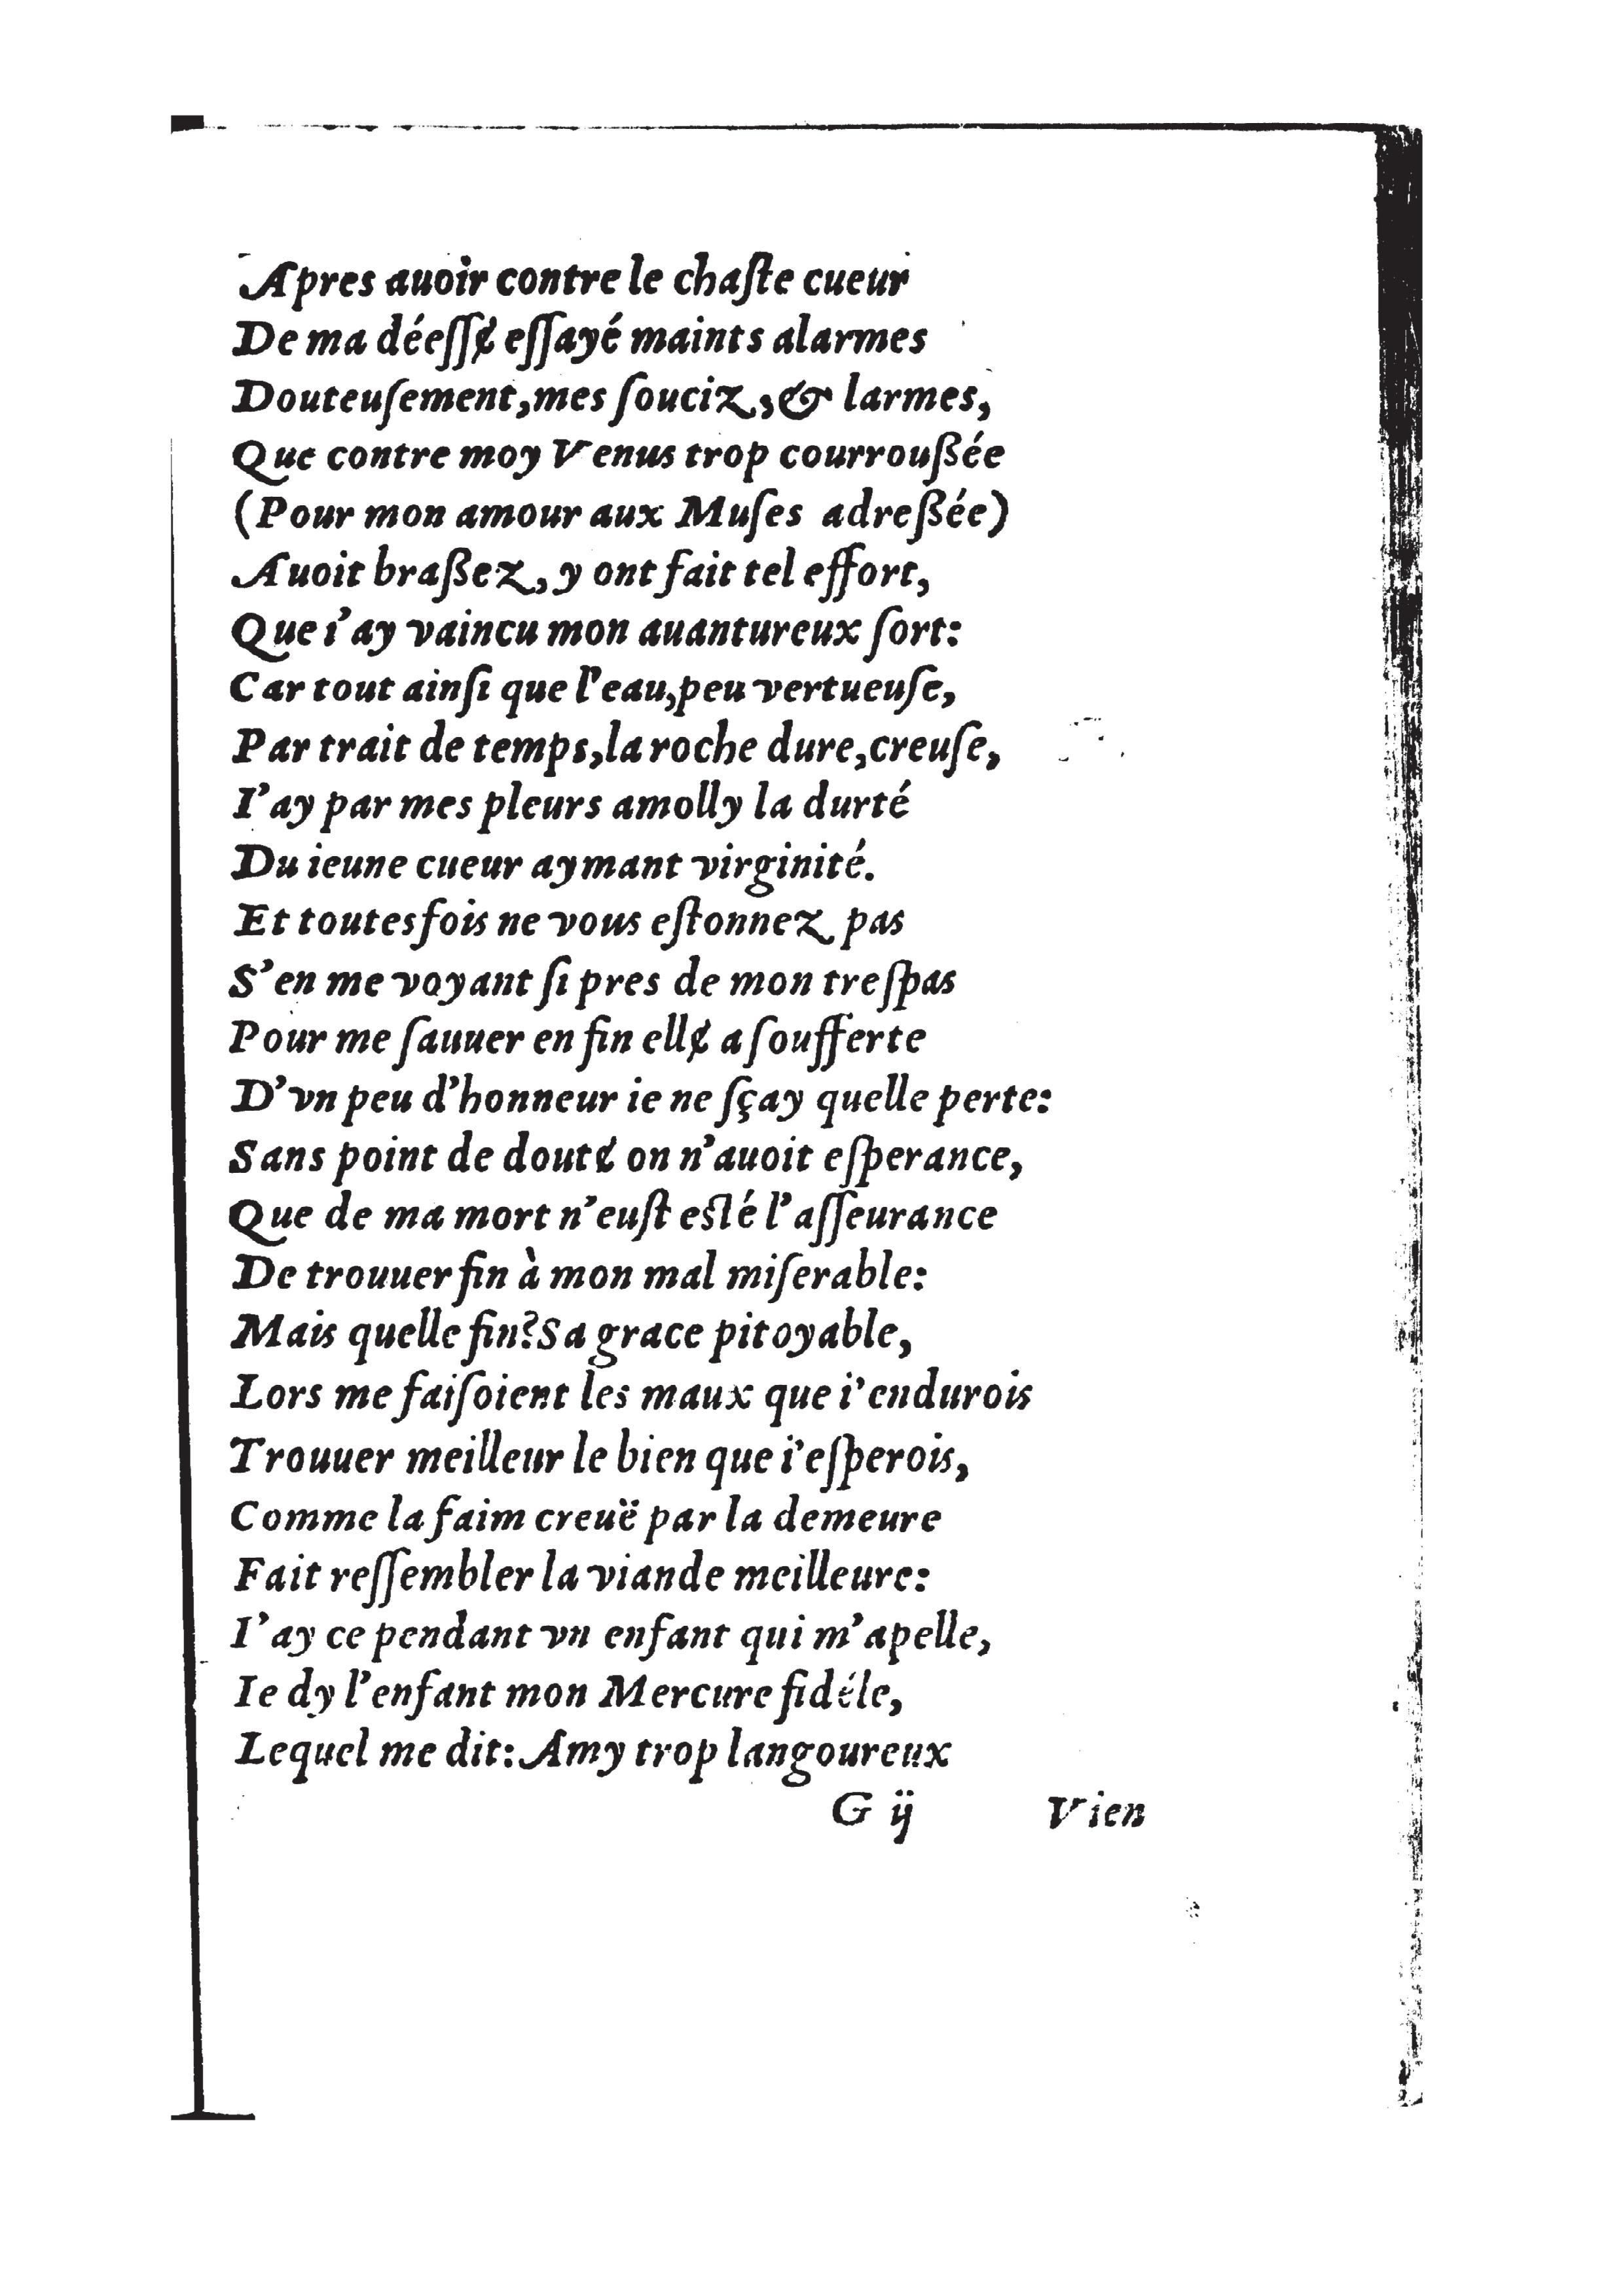 Apres auoir contre le chaſte cueur
De ma déeſſɇ eſſayé maints alarmes
Douteuſement, mes ſouciz, & larmes,
Que contre moy Venus trop courroußée
(Pour mon amour aux Muſes adreßée)
Auoit braßez, y ont fait tel effort,
Que i'ay vaincu mon auantureux ſort:
Car tout ainſi que l'eau, peu vertueuſe,
Par trait de temps, la roche dure, creuſe,
I'ay par mes pleurs amolly la durté
Du ieune cueur aymant virginité.
Et toutesfois ne vous eſtonnez pas
S'en me voyant ſi pres de mon treſpas
Pour me ſauuer en fin ellɇ a ſoufferte
D'vn peu d'honneur ie ne ſçay quelle perte:
Sans point de doutɇ on n'auoit eſperance,
Que de ma mort n'euſt eſté l'aſſeurance
De trouuer fin à mon mal miſerable:
Mais quelle fin? Sa grace pitoyable,
Lors me faiſoient les maux que i'endurois
Trouuer meilleur le bien que i'eſperois,
Comme la faim creuë par la demeure
Fait reſſembler la viande meilleure:
I'ay ce pendant vn enfant qui m'apelle,
Ie dy l'enfant mon Mercure fidéle,
Lequel me dit: Amy trop langoureux
G ij Vien